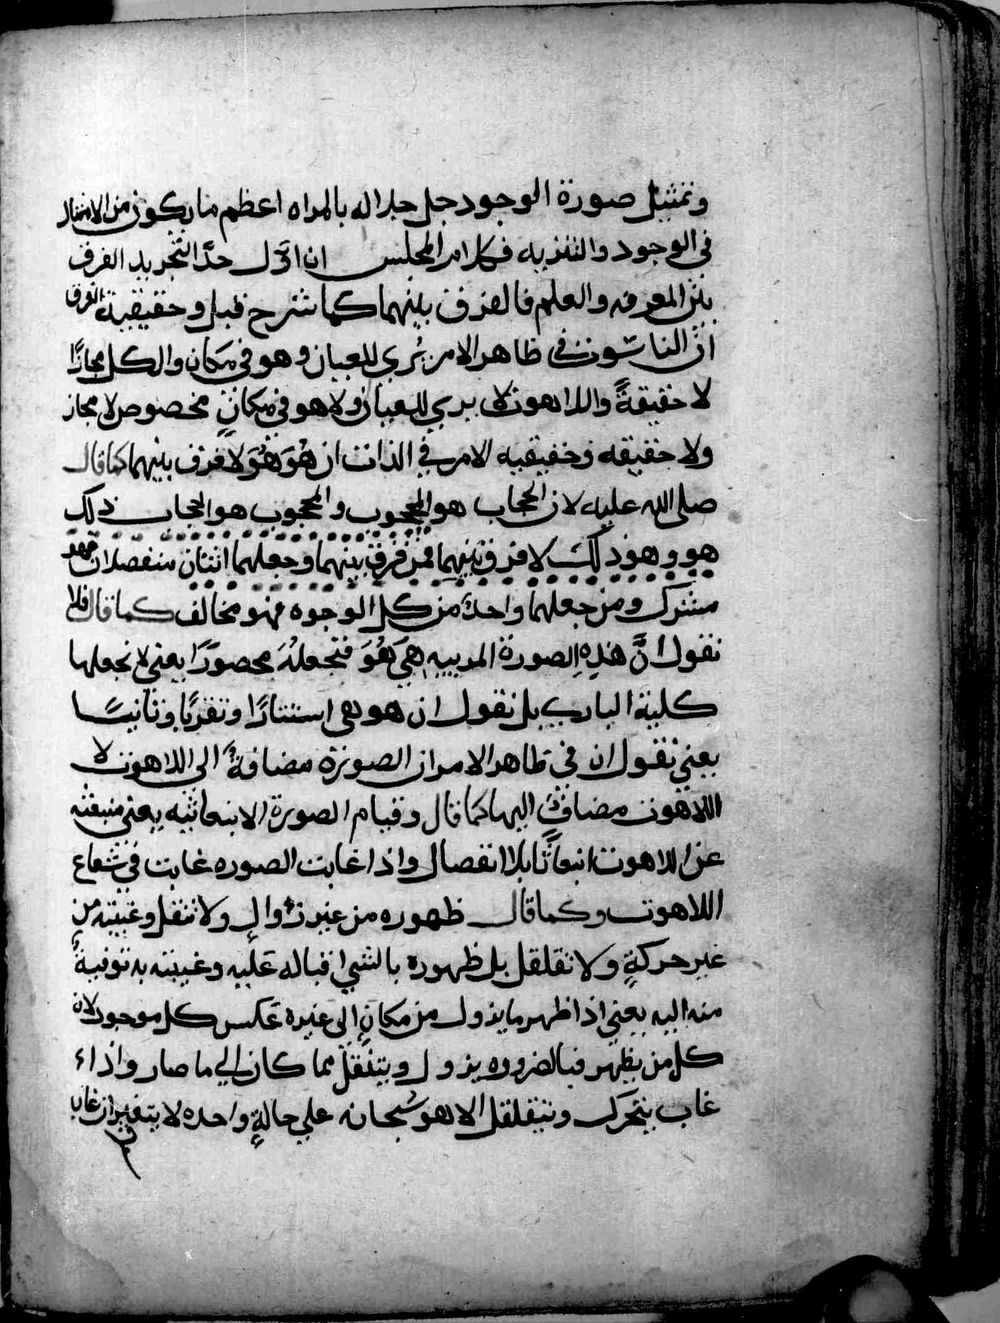 وتمثيل صورة الوجود جل جلاله بالمراه اعظم ما يكون من الامثال
في الوجود والتنزيه فكلام المجلس ان اوّل حدّ التجريد الفرق
بين المعرفه والعلم فالفرق بينهما كما شرح قبل وحقيقية الفرق
انّ الناسوت في ظاهر الامر يُري للعيان وهو في مكان والكل مجازًا
لا حقيقةً واللاهوت لا يري للعيان ولا هو في مكانٍ مخصوص لا مجاز
ولا حقيقه وحقيقيه الامر في الذات ان هُوَ هُوَ لا فرق بينهما كما قال
صلى الله عليه لان الحجاب هو المحجوب والمحجوب هو الحجاب ذلك
هو وهو ذلك لا فرق بينهما فمن فرق بينهما وجعلهما اثنتان منفصلان فقد
مشرك ومن جعلهما واحدً من كل الوجوه فهو مخالف كما قال فلا
نقول انَّ هذه الصورة المرييه هِيَ هُوَ فنجعلهُ محصورًا يعني لا نجعلها
كلية الباري بل نقول ان هو هي استتارًا وتقربًا وتانيسًا
يعني نقول ان في ظاهر الامر ان الصورة مضافةً الى اللاهوت لا
اللاهوت مضافً اليها كما قال وقيام الصورة الانبعاثيه يعني منبعثه
عن اللاهوت انبعاثًا بلا انفصال واذا غابت الصوره غابت في شعاع
اللاهوت وكما قال ظهوره من غير زوالٍ ولا تنقل وغيبته من
غير حركةٍ ولا تقلقل بل ظهوره بالشي اقباله عليه وغيبته به توفيةً
منه اليه يعني اذا ظهر ما يزول من مكانٍ الى غيره عكس كل موجود لان
كل من يظهر فبالضروره يزول ويتنقل مما كان الي ما صار واذا
غاب يتحرك ويتقلقل الا هو سُبحانه علي حالةٍ واحده لا يتغير ان غاب